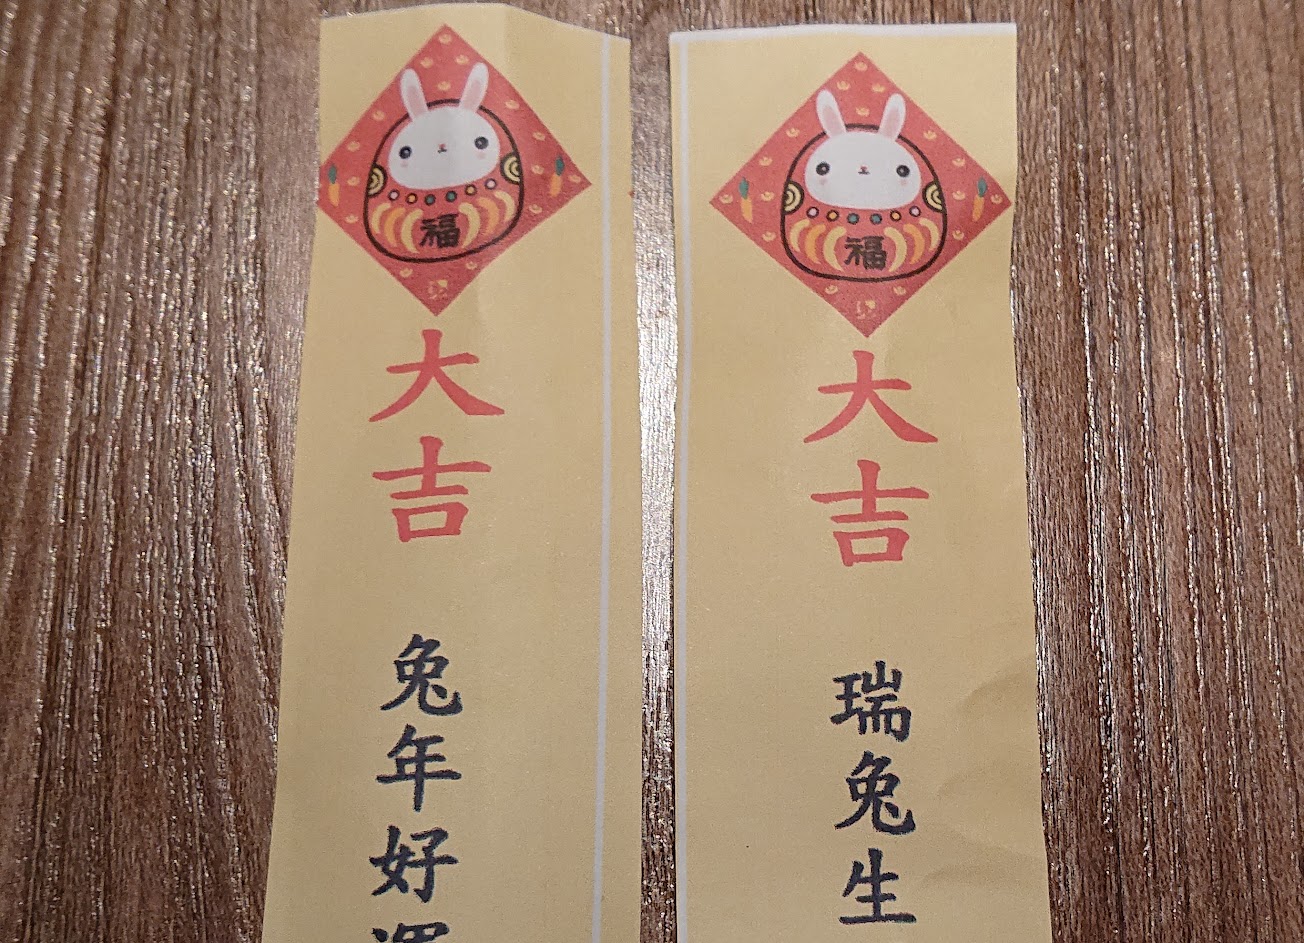 福
大吉
兔年好
福
大吉
瑞兔生